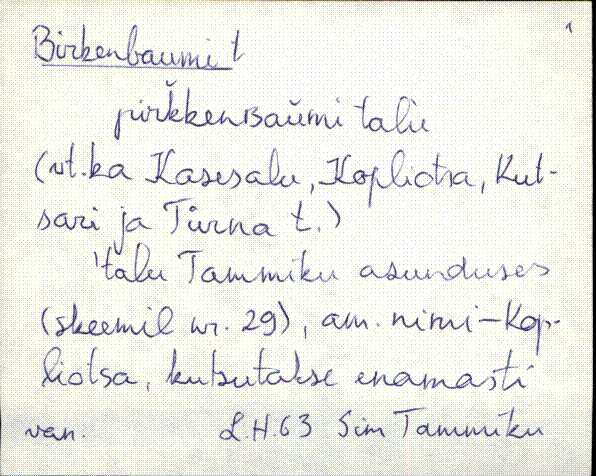 Birkenbaumi t
pirk̆kenʙaŭmi talu
(vt. ka Kasesalu, Kopliotsa, Kut-
sari ja Türna t.)
'talu Tammiku asunduses
(skeemil nr. 29), am. nimi - Kop-
liotsa, kutsutakse enamasti
van. L.H. 63 Sim Tammiku